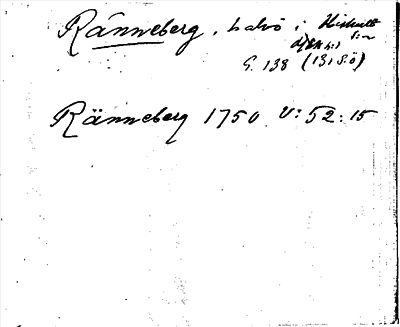 Ränneberg, halvö i
G. 138 (13i S.ö)
Ränneberg 1750 V: 52: 15